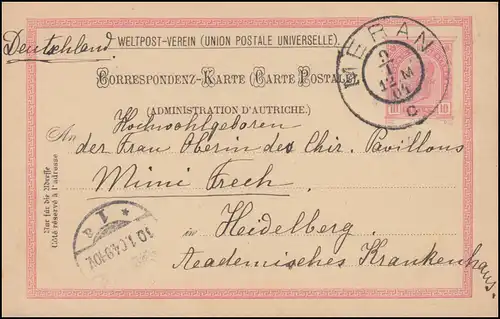 Deutschland.
WELTPOST-VEREIN (UNION POSTALE UNIVERSELLE).
CORRESPONDENZ-KARTE (CARTE POSTALE)
(ADMINISTRATION D'AUTRICHE.)
MERAN
9
1
12 M
04
C
10 10
Hochwohlgeboren
An der Frau Oberin des Chir. Pavillons
Mimi Frech.
in Heidelberg.
Academisches Krankenhaus.
Nur für die Adresse
Côté réservé à l'adresse
* 1 a
10.1.04.8-10V.